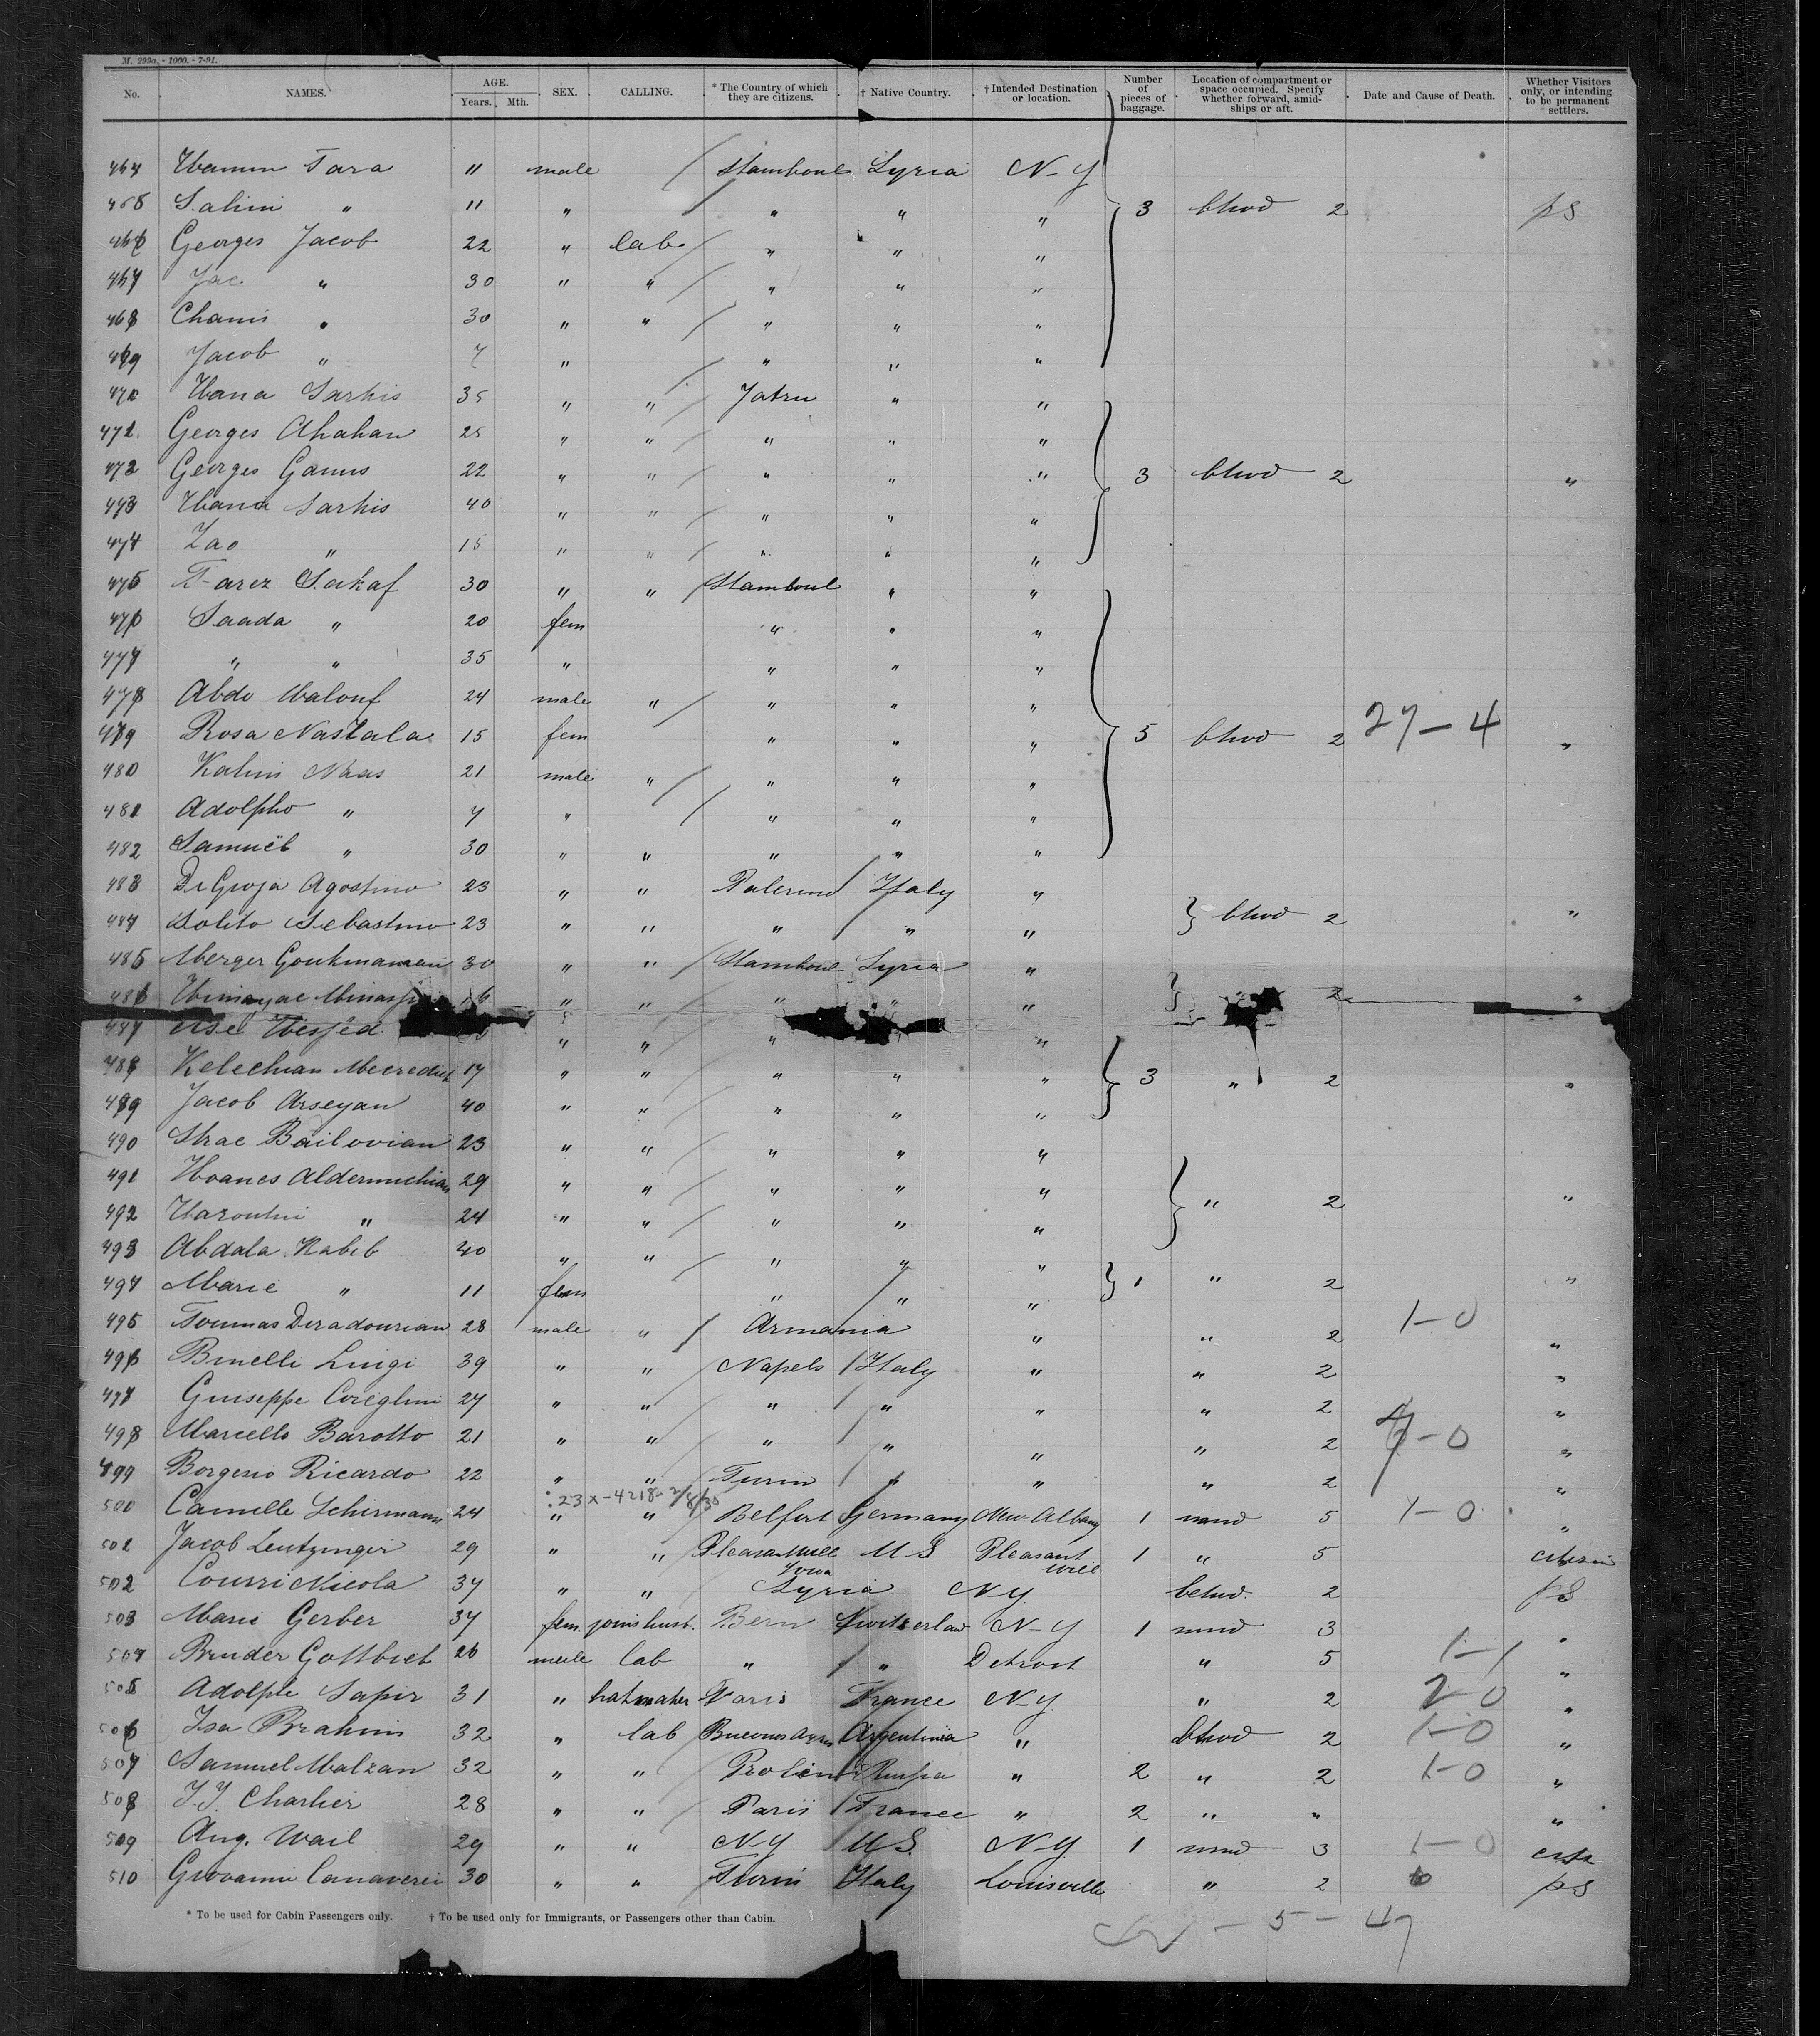 M. 299a. - 1000. - 7-91.
No. NAMES. AGE. Years. Mth. SEX. CALLING. * The Country of which they are citizens. † Native Country. † Intended Destination or location. Number of pieces of baggage. Location of compartment or space occupied. Specify whether forward, amidships or aft. Date and Cause of Death. Whether Visitors only, or intending to be permanent settlers.
464 Tara 11 male Stamboul Syria N-Y
465 Salim " 11 " " " " 3 btwd 2 ps
466 Georges Jacob 22 " lab " " "
467 Jac " 30 " " " " "
468 Chanis " 30 " " " " "
469 Jacob " 7 " " " "
470 Hana Sarkis 35 " " " "
471 Georges 25 " " " " "
472 Georges Ganus 22 " " " " " 3 btwd 2 "
473 Hana Sarkis 40 " " " " "
474 Zao " 15 " " " " "
475 Farez Sakaf 30 " " Stamboul " "
476 Saada " 20 fem " " "
477 " " 35 " " " "
478 Abdo Malouf 24 male " " " "
479 Rosa Nastala 15 fem " " " 5 btwd 2 27-4 "
480 Kalim Naas 21 male " " " "
481 Adolpho " 7 " " " "
482 Samuël " 30 " " " " "
483 Agostino 23 " " Palermo Italy "
484 Solito Sebastino 23 " " " " " btwd 2 "
485 30 " " Stamboul Syria "
486 " " " " " 2 "
487 " " " "
488 Kelechian 17 " " " " " 3 " 2 "
489 Jacob Arseyan 40 " " " " "
490 Bailovian 23 " " " " "
491 Hoanes 29 " " " " " " 2 "
492 Haroutni " 24 " " " " "
493 Abdala Kabib 40 " " " " "
494 Marie " 11 fem " " " 1 " 2 "
495 Toumas Deradourian 28 male " Armania " " 2 1-0 "
496 Binelli Luigi 39 " " Napels Italy " " 2 "
497 Giuseppe 27 " " " " " " 2 "
498 Marcello Barotto 21 " " " " " " 2 -0 "
499 Borgesio Ricardo 22 " " Turin " " " 2 "
23 x-4218-2/8/35
500 Camille Schirmann 24 " " Belfort Germany New Albany 1 mmd 5 1-0 "
501 Jacob Leutzinger 29 " " US Pleasant 1 " 5 citizen
Iowa
502 Courri Nicola 37 " " Syria NY. 2 ps
503 Marie Gerber 37 fem. joins husb. Bern Switzerland N-Y 1 mmd 3 "
504 Bruder Gottbiet 26 male lab " " Detroit " 5 1-1 "
505 Adolphe Sapir 31 " hatmaker Paris France NY. " 2 2-0 "
506 Isa Brahim 32 " lab Buenos Ayres Argentinia " btwd 2 1-0 "
507 Samuel Malzan 32 " " Russia " 2 " 2 1-0 "
508 J.J. Charlier 28 " " Paris France " 2 " " "
509 Aug. Wail 29 " " N-Y U.S. N-Y. 1 mmd 3 1-0
510 Giovanni Canaverei 30 " " Turin Italy Louisville " 2 ps
* To be used for Cabin Passengers only. † To be used only for Immigrants, or Passengers other than Cabin.
- 5 - 47